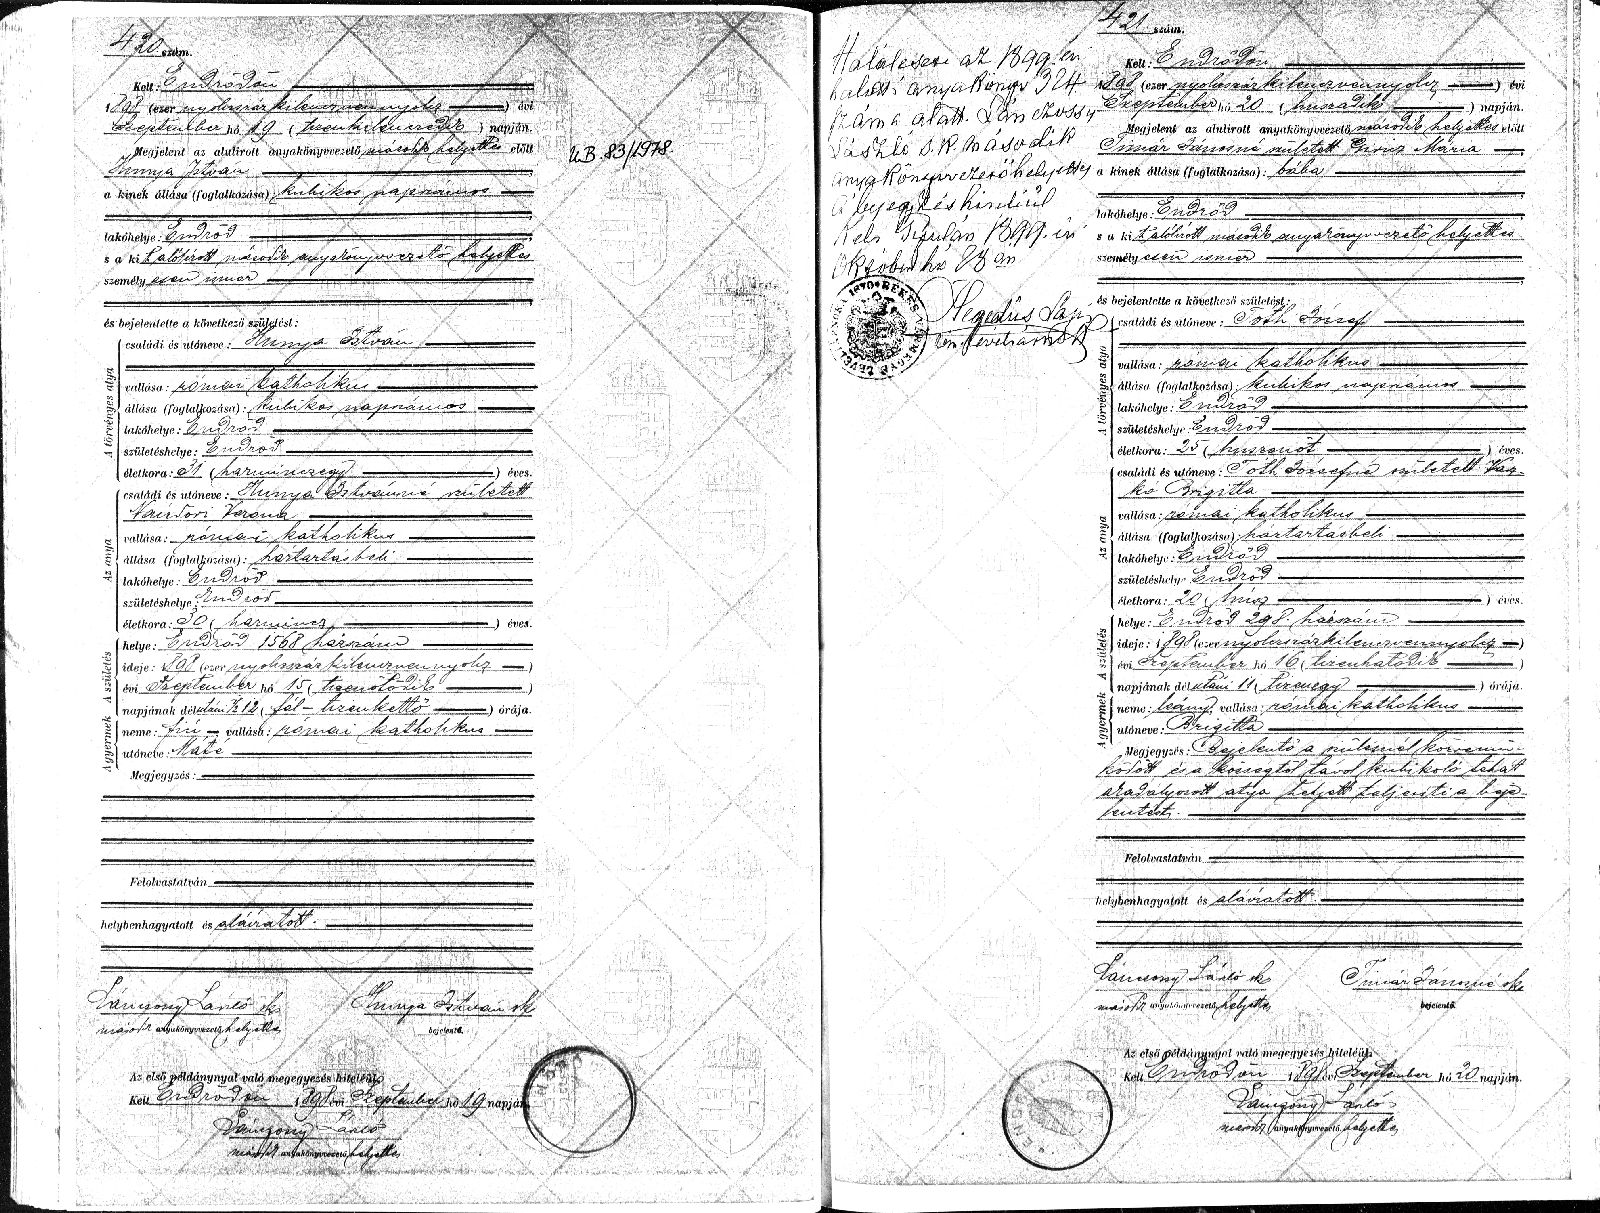 420 szám.
Kelt: Endrődön
1898 (ezer nyolcszázkilenczvennyolcz) évi
Szeptember hó 19 (tizenkilenczedik) napján.
Megjelent az alulirott anyakönyvvezető második helyettes előtt
Hunya István
a kinek állása (foglalkozása): kubikos napszámos
lakóhelye: Endrőd
s a kit alólirott második anyakönyvvezető helyettes
személyesen ismer
és bejelentette a következő születést:
A törvényes atya
családi és utóneve: Hunya István
vallása: római katholikus
állása (foglalkozása): kubikos napszámos
lakóhelye: Endrőd
születéshelye: Endrőd
életkora: 31 (harminczegy) éves.
Az anya
családi és utóneve: Hunya Istvánné született
Verona
vallása: római katholikus
állása (foglalkozása): háztartásbeli
lakóhelye: Endrőd
születéshelye: Endrőd
életkora: 30 (harmincz) éves.
A születés
helye: Endrőd 1568 házszám
ideje: 1898 (ezer nyolcszázkilenczvennyolcz)
évi Szeptember hó 15 (tizenötödik)
napjának délutáni ½12 (fél-tizenkettő) órája.
A gyermek
neme: fiú vallása: római katholikus
utóneve: Máté
Megjegyzés:
Felolvastatván
helybenhagyatott és aláiratott.
László sk Hunya István sk
másod anyakönyvvezető helyettes bejelentő.
Az első példánynyal való megegyezés hiteléül:
Kelt Endrődön 1898 évi Szeptember hó 19 napján.
László
másod anyakönyvvezető helyettes
U.B. 83/1978.
Halálesete az 1899. évi
halotti anyakönyv 324
szám alatt.
László s.k. második
anyakönyvvezetőhelyettes
Kelt Gyulán 1899. évi
Október hó 13 án
Hegedűs
421 szám.
Kelt: Endrődön
1898 (ezer nyolcszázkilenczvennyolcz) évi
Szeptember hó 20 (huszadik) napján.
Megjelent az alulirott anyakönyvvezető második helyettes előtt
Timár Jánosné született Mária
a kinek állása (foglalkozása): bába
lakóhelye: Endrőd
s a kit alólirott második anyakönyvvezető helyettes
személyesen ismer
és bejelentette a következő születést:
A törvényes atya
családi és utóneve: Tóth József
vallása: római katholikus
állása (foglalkozása): kubikos napszámos
lakóhelye: Endrőd
születéshelye: Endrőd
életkora: 25 (huszonöt) éves.
Az anya
családi és utóneve: Tóth Józsefné született
Brigitta
vallása: római katholikus
állása (foglalkozása): háztartásbeli
lakóhelye: Endrőd
születéshelye: Endrőd
életkora: 20 (húsz) éves.
A születés
helye: Endrőd 298 házszám
ideje: 1898 (ezer nyolcszázkilenczvennyolcz)
évi Szeptember hó 16 (tizenhatodik)
napjának délutáni 11 (tizenegy) órája.
A gyermek
neme: leány, vallása: római katholikus
utóneve: Brigitta
Megjegyzés: Bejelentő a szülésnél közremű-
ködött és a községtől távol kubikoló tehát
akadályozott atya helyett teljesíti a beje-
lentést.
Felolvastatván
helybenhagyatott és aláiratott.
László sk Timár Jánosné sk
másod anyakönyvvezető helyettes bejelentő.
Az első példánynyal való megegyezés hiteléül:
Kelt Endrődön 1898 évi Szeptember hó 20 napján.
László
másod anyakönyvvezető helyettes